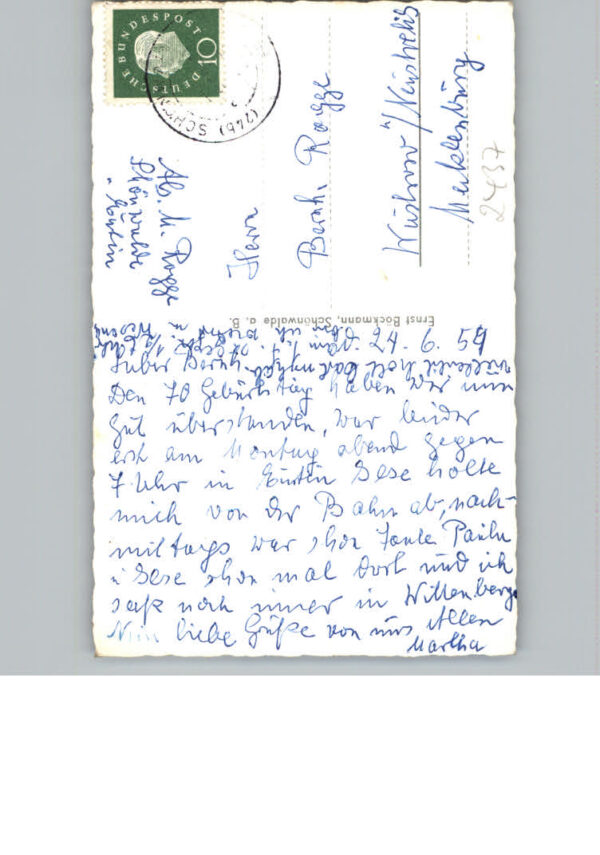 DEUTSCHE BUNDESPOST
10
(24b) SCH
Abs. M. Rogge
Schönwalde
Eutin
Herrn
Bernh. Rogge
Wustrow ü/Neustrelitz
Mecklenburg
2437
Ernst Böckmann, Schönwalde a. B.
d. 24. 6. 59
Lieber Bernh.
Den 70 Geburtstag haben wir nun
gut überstanden, war leider
erst am Montag abend gegen
7 Uhr in Eutin Gese holte
mich von der Bahn ab, nach-
mittags war schon Tante Paula
u Gese schon mal dort und ich
saß noch immer in Wittenberge
Nun liebe Grüße von uns Allen
Martha